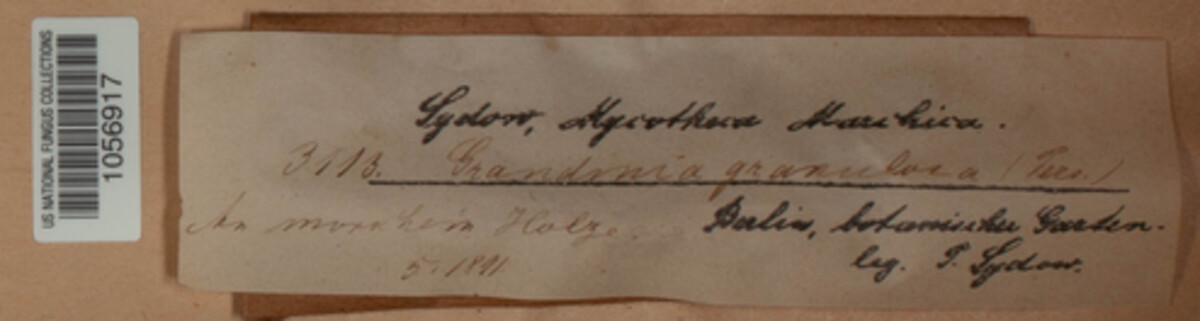 US NATIONAL FUNGUS COLLECTIONS
1056917
Sydow, Mycotheca Marchica.
3113. Grandinia granulosa (Pers.)
An morschem Holze.
Berlin, botanischer Garten.
5. 1891
leg. P. Sydow.